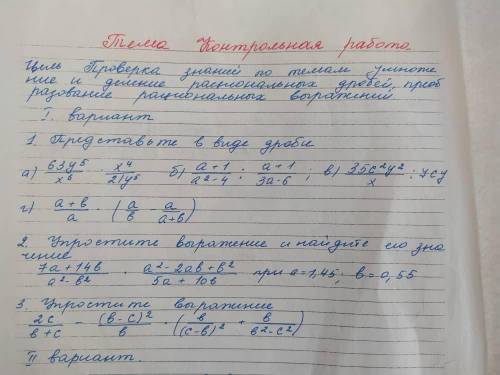 Тема Контрольная работа
Цель Проверка знаний по темам умноже
ние и деление рациональных дробей, преоб
разование рациональных выражений
I. вариант
1. Представьте в виде дроби
а) 63y⁵/x⁶ · x⁴/21y⁵ б) a+1/a²-4 : a+1/3a-6 ; в) 35c²y²/x : 7cy
г) a+b/a · (a/b - a/a+b)
2. Упростите выражение и найдите его зна
чение
7a+14b/a²-b² · a²-2ab+b²/5a+10b при a=1,45; b=0,55
3. Упростите выражение
2c/b+c - (b-c)²/b · (b/(c-b)² + b/b²-c²)
II вариант.